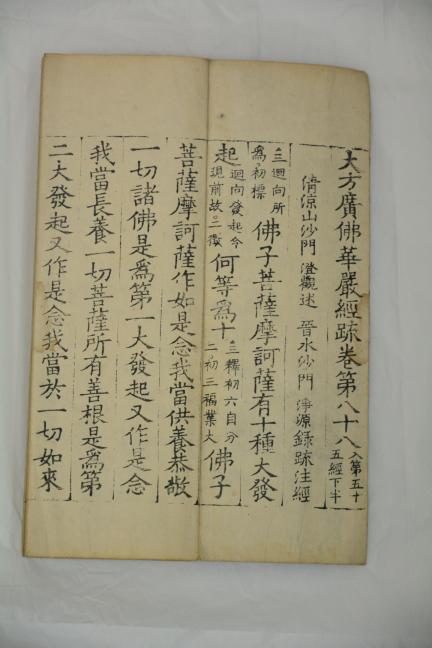 大方廣佛華嚴經疏卷第八十八入第五十五經下半
清涼山沙門 澄觀述 晉水沙門 淨源錄疏注經
三迴向所爲初標佛子菩薩摩訶薩有十種大發
起迴向發起今現前故二徵何等爲十三釋初六自分二初三福業大佛子
菩薩摩訶薩作如是念我當供養恭敬
一切諸佛是爲第一大發起又作是念
我當長養一切菩薩所有善根是爲第
二大發起又作是念我當於一切如來